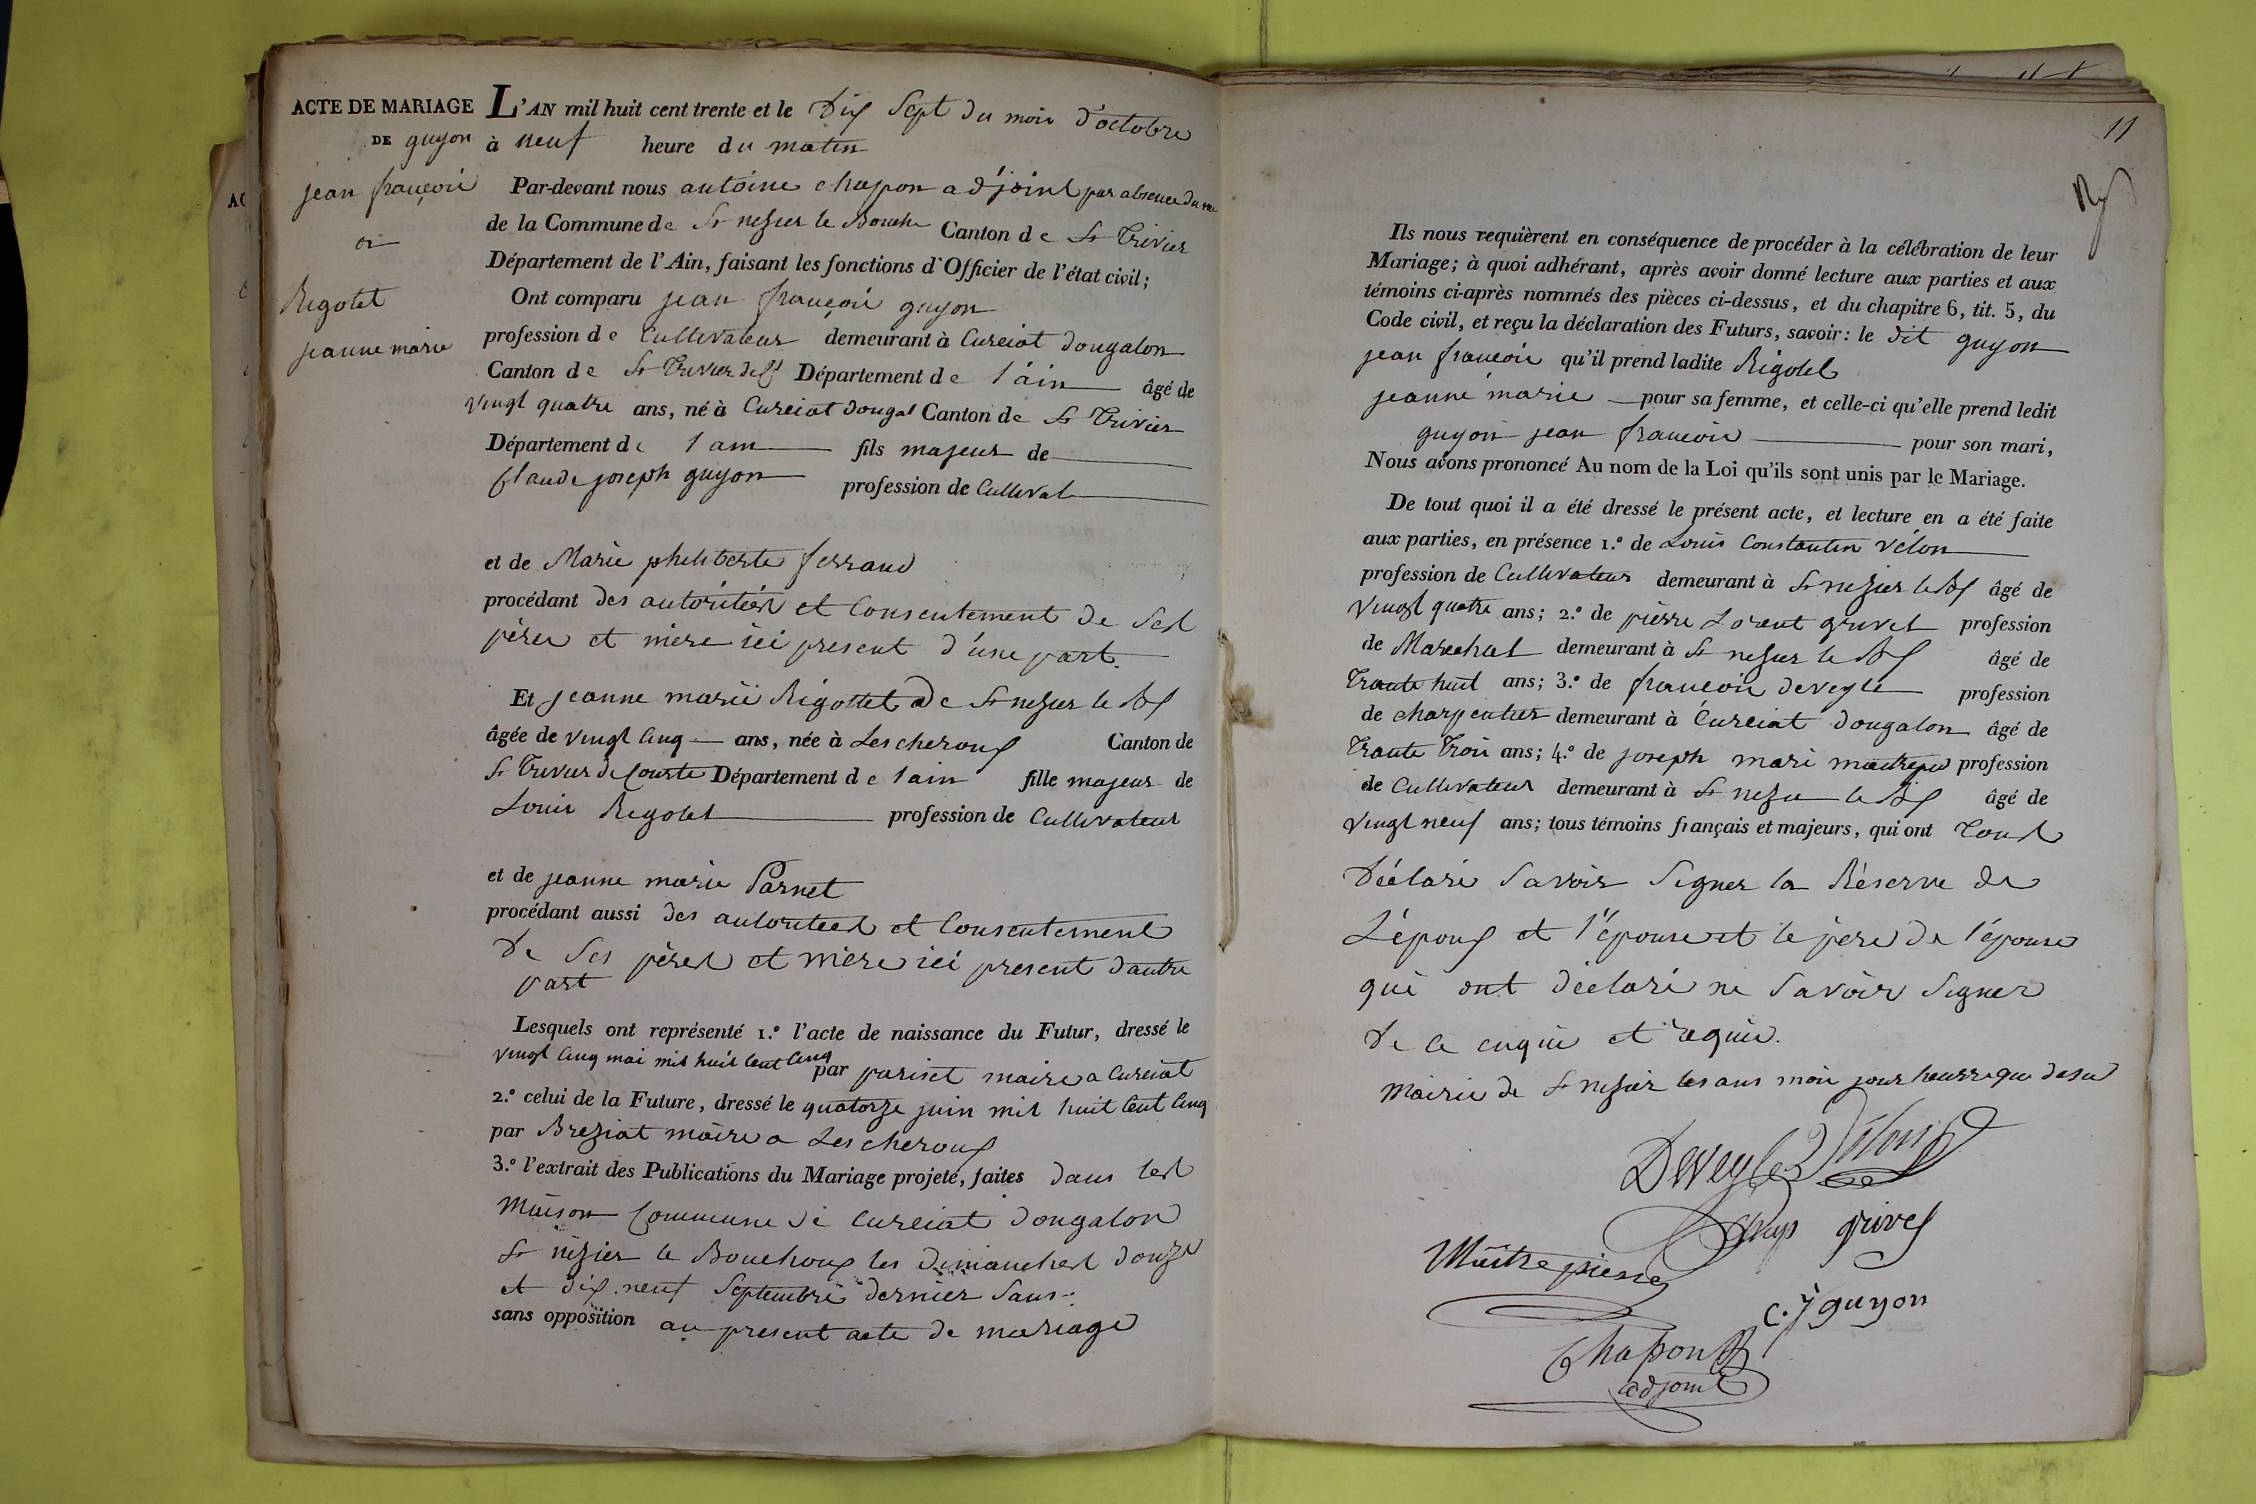 ACTE DE MARIAGE
DE guyon
jean françois
et
Rigotet
jeanne marie
L'AN mil huit cent trente et le Dix Sept du mois d'octobre
à neuf heure du matin
Par-devant nous antoine chapon adjoint par absence du
de la Commune de St nizier le Bouch Canton de St Trivier
Département de l'Ain, faisant les fonctions d'Officier de l'état civil;
Ont comparu jean françois guyon
profession de Cultivateur demeurant à Curciat dongalon
Canton de St Trivier de Département de l'ain âgé de
vingt quatre ans, né à Curciat dongal Canton de St Trivier
Département de l'ain fils majeur de
Claude joseph guyon profession de Cultivat
et de Marie philiberte ferrand
procédant des autoritées et Consentement de Ses
pères et mère ici present d'une part.
Et jeanne marie Rigottet de St nizier le Bx
âgée de vingt cinq ans, née à Lescheroux Canton de
St Trivier de Courte Département de l'ain fille majeur de
Louis Regotet profession de Cultivateur
et de jeanne marie Parnet
procédant aussi des autoritées et Consentement
de Ses pères et mère ici present d'autre
part
Lesquels ont représenté 1.º l'acte de naissance du Futur, dressé le
vingt cinq mai mil huit cent cinq par pariset maire a Curciat
2.º celui de la Future, dressé le quatorze juin mil huit cent cinq
par Breziat maire a Lescheroux
3.º l'extrait des Publications du Mariage projeté, faites dans les
Maison Commune de Curciat dongalon
St nizier le Bouchoux les dimanches douze
et dix neuf Septembre dernier Sans
sans opposition au present acte de mariage
11
Ils nous requièrent en conséquence de procéder à la célébration de leur
Mariage; à quoi adhérant, après avoir donné lecture aux parties et aux
témoins ci-après nommés des pièces ci-dessus, et du chapitre 6, tit. 5, du
Code civil, et reçu la déclaration des Futurs, savoir: le dit guyon
jean françois qu'il prend ladite Rigotet
jeanne marie pour sa femme, et celle-ci qu'elle prend ledit
guyon jean françois pour son mari,
Nous avons prononcé Au nom de la Loi qu'ils sont unis par le Mariage.
De tout quoi il a été dressé le présent acte, et lecture en a été faite
aux parties, en présence 1.º de Louis Constantin Vélon
profession de Cultivateur demeurant à St nizier le Bx âgé de
vingt quatre ans; 2.º de pierre Lorent grivet profession
de Marechal demeurant à St nizier le Bx âgé de
Trante huit ans; 3.º de françois deveyle profession
de charpentier demeurant à Curciat dongalon âgé de
Trante Trois ans; 4.º de joseph mari profession
de Cultivateur demeurant à St nizie le Bx âgé de
vingt neuf ans; tous témoins français et majeurs, qui ont Tous
Déclaré Savoir Signer la Réserve de
L'époux et l'épouse et le père de l'épouse
qui ont déclaré ne Savoir Signer
de ce enquis et requis.
Mairie de St nizier les ans mois jour heurre que desu
Deveyle Vélon
grivel
Maitrepierre
C. j guyon
Chapon
adjoint